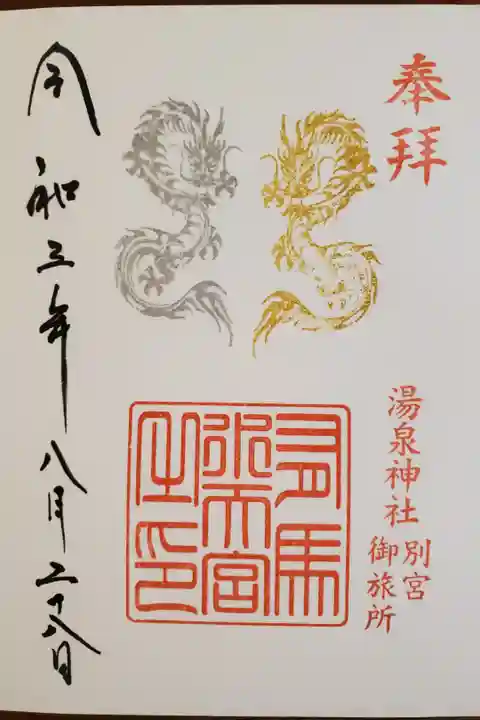 奉拝
湯泉神社
別宮
御旅所
有馬
水天宮
之印
令和三年八月二十八日